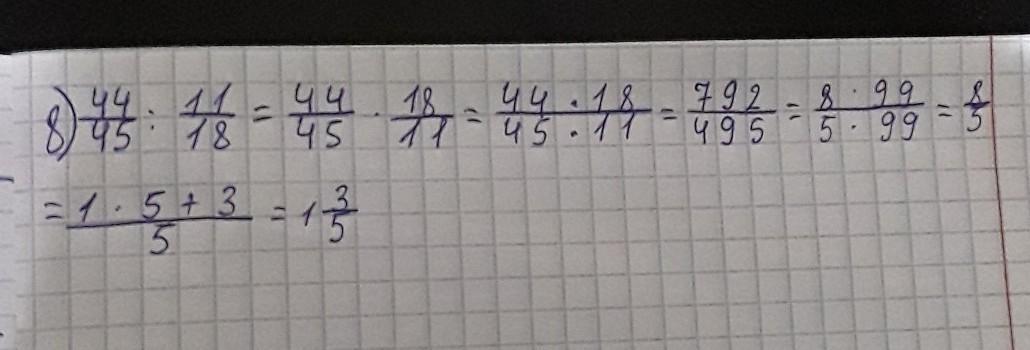 8) 44/45 : 11/18 = 44/45 · 18/11 = 44 · 18/45 · 11 = 792/495 = 8 · 99/5 · 99 = 8/5
= 1 · 5 + 3/5 = 1 3/5